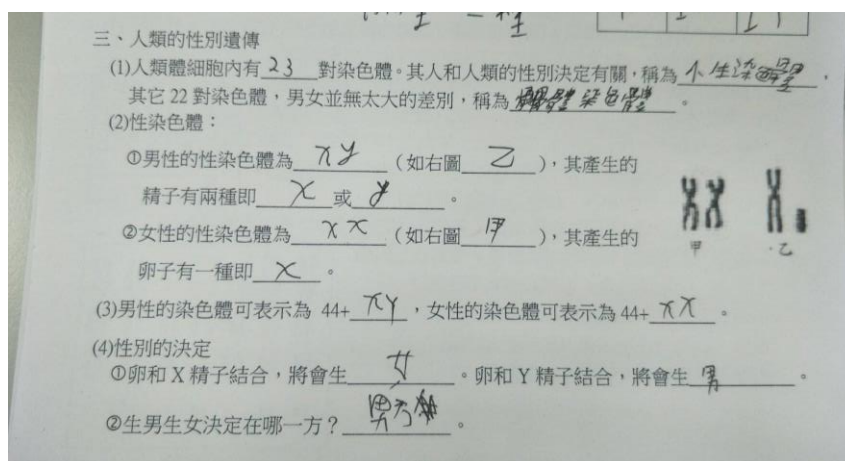 三、人類的性別遺傳
(1)人類體細胞內有 23 對染色體。其人和人類的性別決定有關,稱為 性染體,
其它 22 對染色體,男女並無太大的差別,稱為 體染色體 。
(2)性染色體:
①男性的性染色體為 XY (如右圖 乙 ),其產生的
精子有兩種即 X 或 y 。
②女性的性染色體為 XX (如右圖 甲 ),其產生的
卵子有一種即 X 。
甲 乙
(3)男性的染色體可表示為 44+ XY ,女性的染色體可表示為 44+ XX 。
(4)性別的決定
①卵和 X 精子結合,將會生 女 。卵和 Y 精子結合,將會生 男 。
②生男生女決定在哪一方? 男方 。